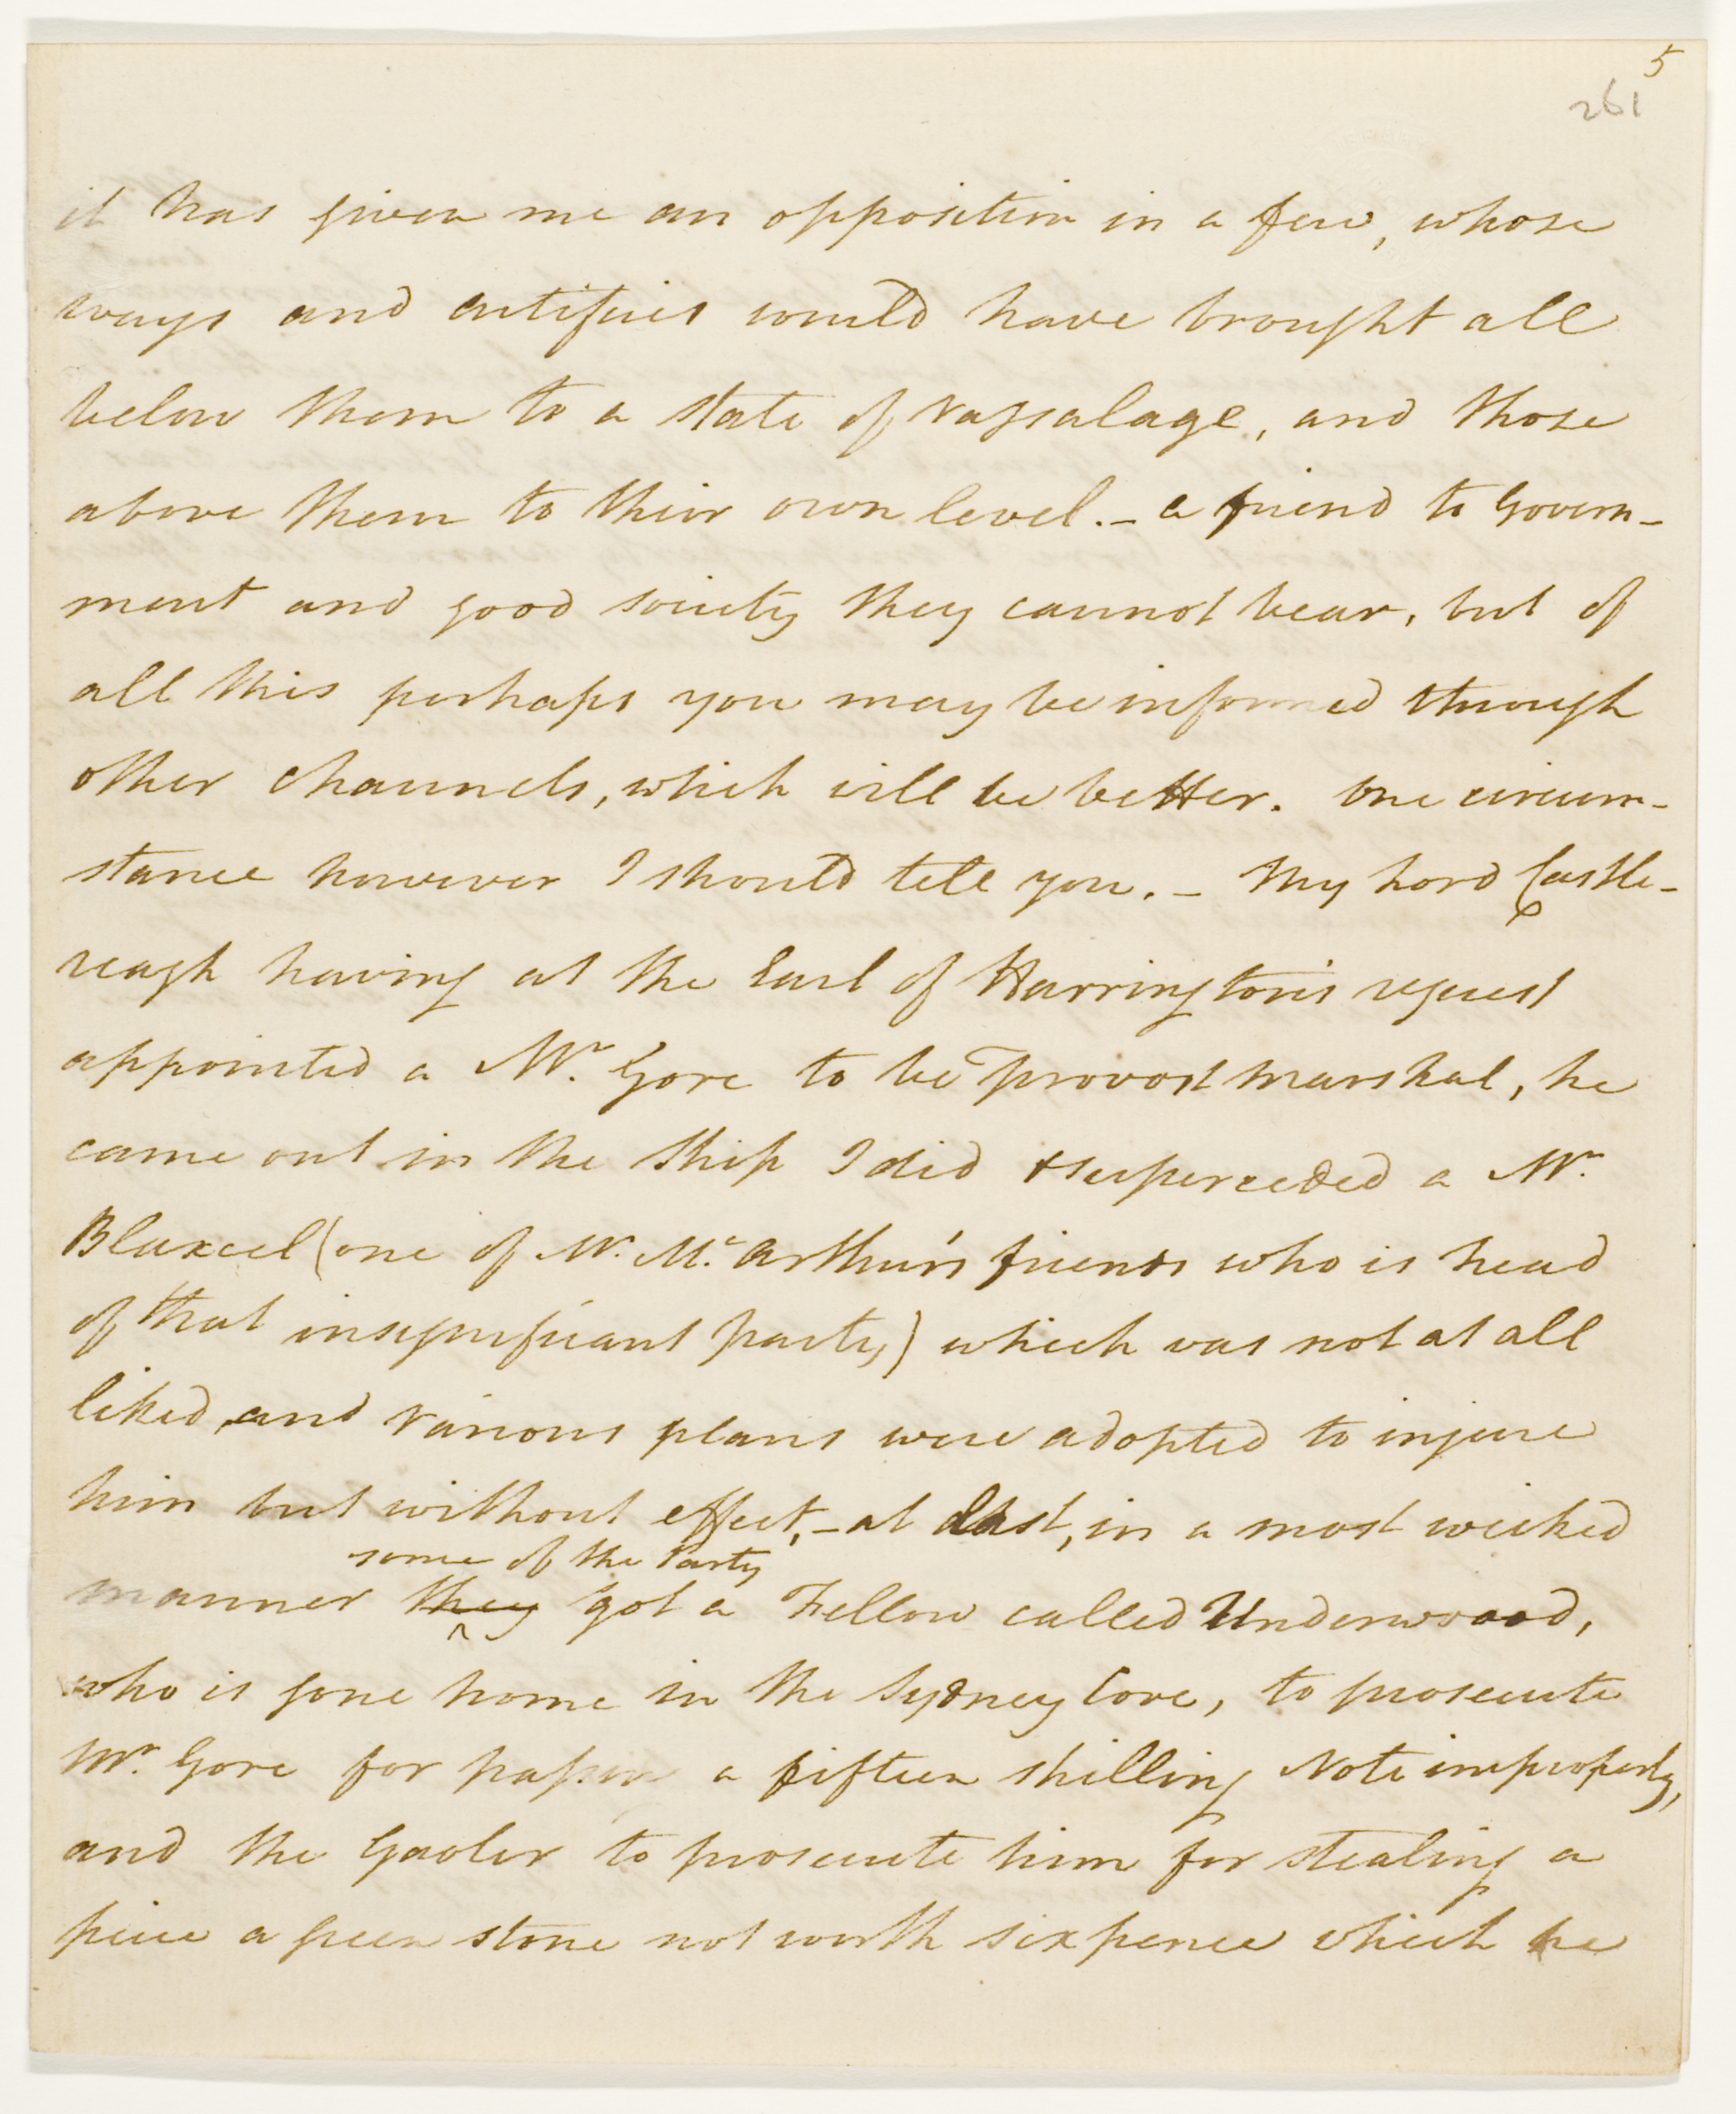 5
261
it has given me an opposition in a few, whose
ways and artifices would have brought all
below them to a state of vassalage, and those
above them to their own level. – a friend to Govern-
ment and good society they cannot bear, but of
all this perhaps you may be informed through
other channels, which will be better. One circum-
stance however I should tell you. – My Lord Castle-
reagh having at the Earl of Harrington's request
appointed a Mr. Gore to be Provost Marshal, he
came out in the Ship I did & superceded a Mr.
Blaxcel (one of Mr. McArthur's friends who is head
of that insignificant party,) which was not at all
liked, and various plans were adopted to injure
him but without effect, – at last, in a most wicked
some of the Party
manner they got a Fellow called Underwoood,
who is gone home in the Sydney Cove, to prosecute
Mr. Gore for passing a fifteen shilling Note improperly,
and the Gaoler to prosecute him for stealing a
piece a green stone not worth sixpence which he